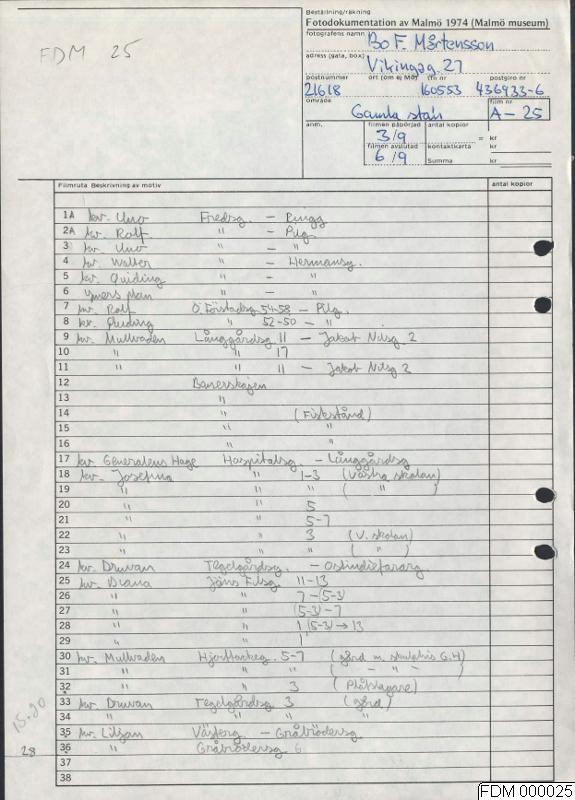 FDM 25
Beställning/räkning
Fotodokumentation av Malmö 1974 (Malmö museum)
fotografens namn Bo F. Mårtensson
adress (gata, box) Vikingag. 27
postnummer ort (om ej Mö) tfn nr postgiro nr
21618 160553 436933-6
område film nr
Gamla stan A-25
anm. filmen påbörjad antal kopior
3/9 = kr
filmen avslutad kontaktkarta kr
6/9 Summa kr
Filmruta Beskrivning av motiv antal kopior
1A kv. Uno Fredsg. - Ringg
2A kv. Rolf " - Pilg
3 kv. Uno " - "
4 kv. Walter " - Hermansg.
5 kv. Quiding " - "
6 Ymers plan " - "
7 kv. Rolf Ö. Förstadsg 54-58 - Pilg.
8 kv. Quiding " 52-50 - "
9 kv. Mullvaden Långgårdsg 11 - Jakob Nilsg 2
10 " " 17
11 " " 11 - Jakob Nilsg 2
12 Banerskajen
13 "
14 " (Fiskestånd)
15 " "
16 " "
17 kv. Generalens Hage Hospitalsg. - Långgårdsg
18 kv. Josefina " 1-3 (Västra skolan)
19 " " " ( " )
20 " " 5
21 " " 5-7
22 " " 3 (V. skolan)
23 " " " ( " )
24 kv. Druvan Tegelgårdsg. - Ostindiefararg.
25 kv. Diana Jöns Filsg. 11-13
26 " " 7-(5-3)
27 " " (5-3)-7
28 " " 1 (5-3) → 13
29 " " 1
30 kv. Mullvaden Hjorttackeg. 5-7 (gård m. G.H)
31 " " " ( - " - " )
32 " " 3 (Plåtslagare)
33 kv. Druvan Tegelgårdsg 3 (gård)
34 " " " "
35 kv. Liljan Västerg. - Gråbrödersg
36 " Gråbrödersg 6
37
38
15-20
28
FDM 000025